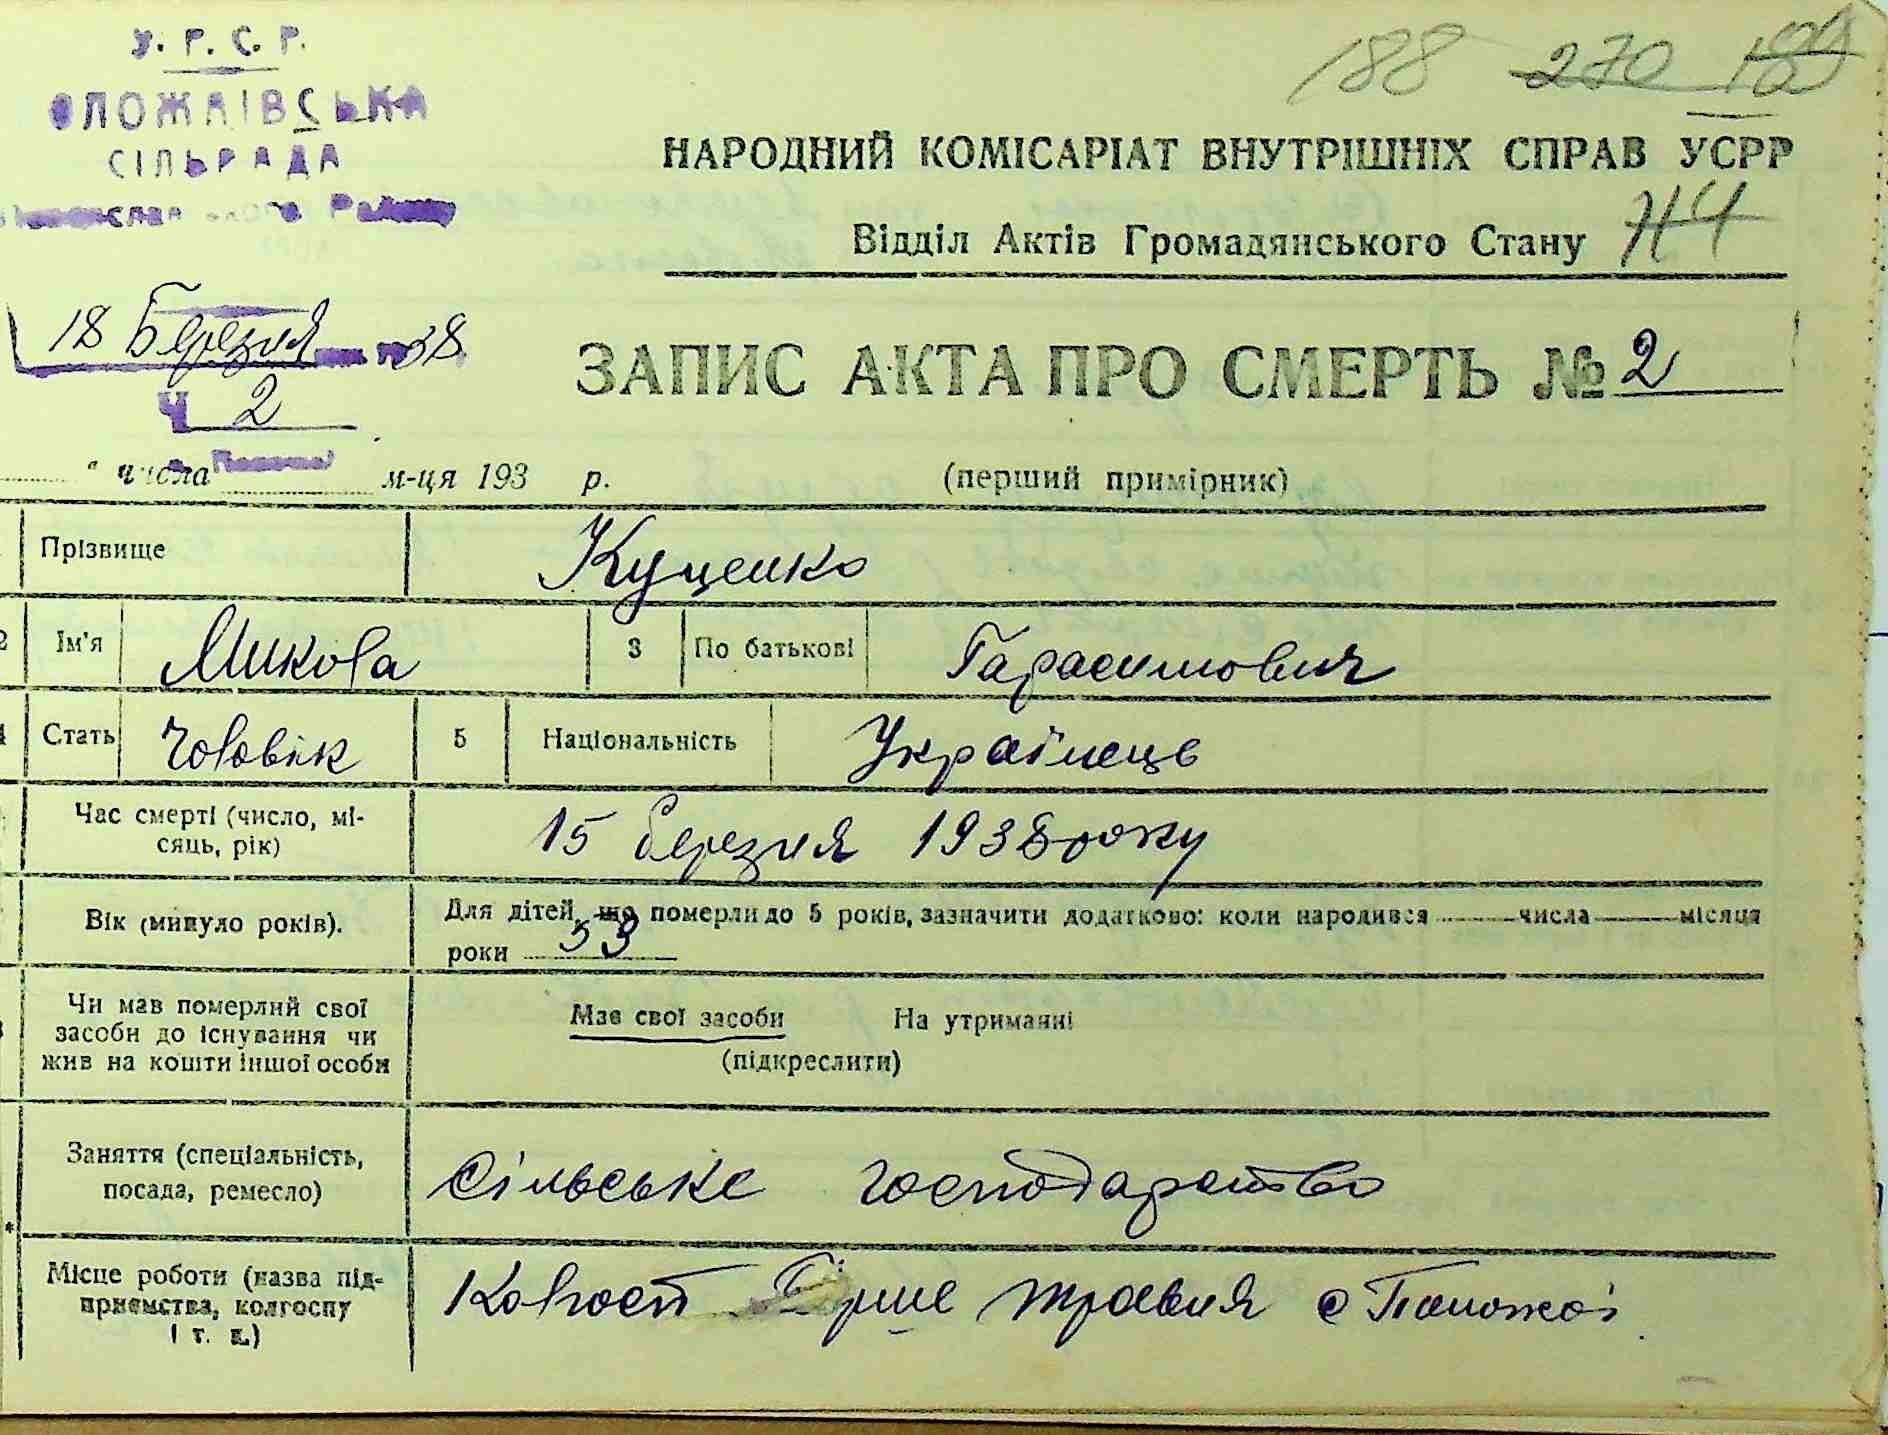 У. Р. С. Р.
188 270 189
ПОЛОЖАІВСЬКА
СІЛЬРАДА
НАРОДНИЙ КОМІСАРІАТ ВНУТРІШНІХ СПРАВ УСРР
Відділ Актів Громадянського Стану
18 Березня 38
ЗАПИС АКТА ПРО СМЕРТЬ № 2
Ч 2
" числа м-ця 193 р. (перший примірник)
Прізвище Куценко
2 Ім'я Микола 3 По батькові Гарасимович
4 Стать Чоловік 5 Національність Українець
Час смерті (число, мі-
сяць, рік) 15 березня 1938 року
Вік (минуло років). Для дітей, що померли до 5 років, зазначити додатково: коли народився числа місяця
роки 53
Чи мав померлий свої
засоби до існування чи
жив на кошти іншої особи
Має свої засоби На утриманні
(підкреслити)
Заняття (спеціальність,
посада, ремесло) Сільське господарство
Місце роботи (назва під-
приємства, колгоспу
і т. д.) Колгосп Перше травня с